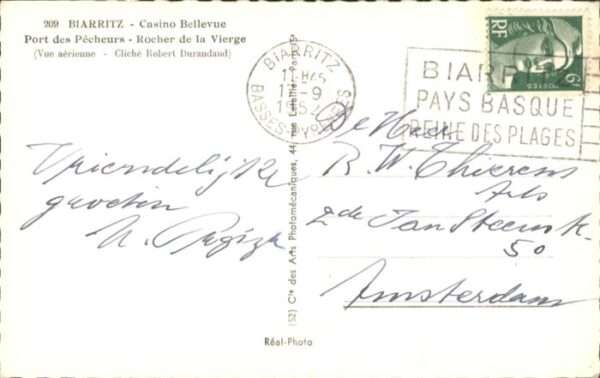 209 BIARRITZ - Casino Bellevue
Port des Pêcheurs - Rocher de la Vierge
(Vue aérienne - Cliché Robert Durandaud)
BIARRITZ
11H45
11-9
195
BASSES-PYR
RF
POSTES
BIARRITZ
PAYS BASQUE
REINE DES PLAGES
Vriendelijke
groeten
De Heer
B. W. Thierens
Arts
2de Jan Steenstr.
50
Amsterdam
(52) Cie des Arts Photomécaniques, 44, rue Letellier, Paris
Réal-Photo